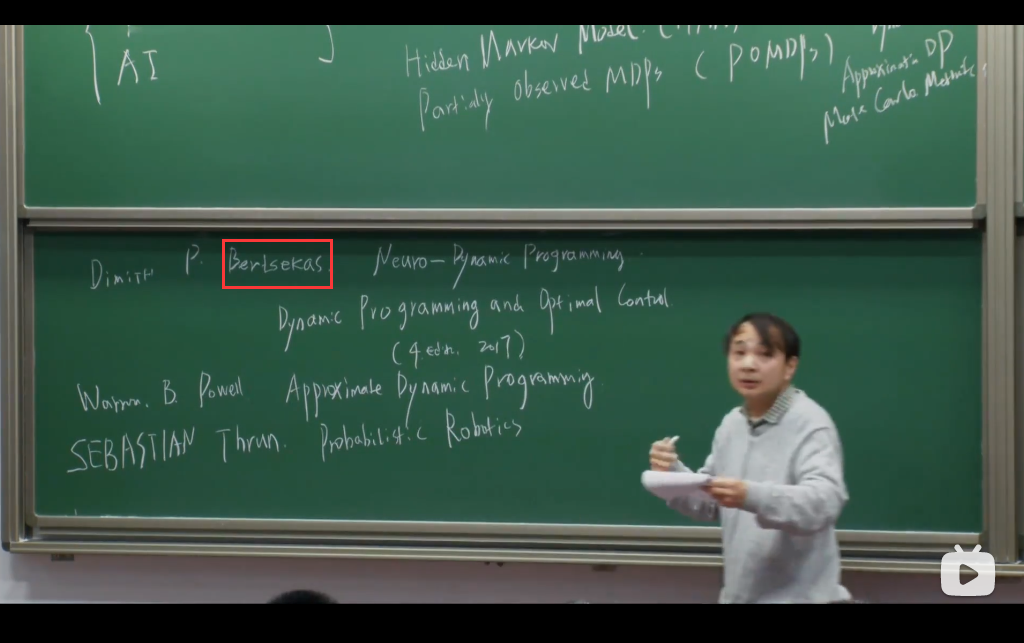 AI
Hidden Markov Model.
Partially Observed MDPs (POMDPs)
Approximate DP
Monte Carlo Methods
Dimitri P. Bertsekas. Neuro-Dynamic Programming.
Dynamic Programming and Optimal Control
(4 edtn. 2017)
Warren. B. Powell Approximate Dynamic Programming.
SEBASTIAN Thrun. Probabilistic Robotics